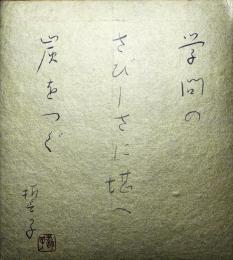 学問の
さびしさに堪へ
炭をつぐ
誓子